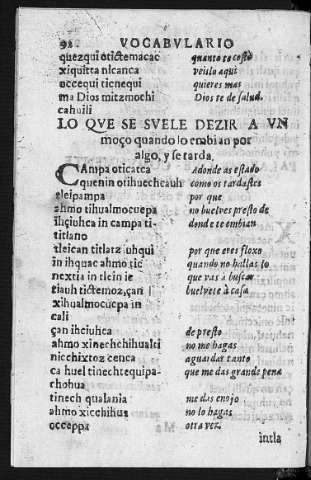 92. VOCABVLARIO
quezqui otictemacac quanto te costo
xiquitta nicanca veislo aqui
occequi ticnequi quieres mas
ma Dios mitzmochi Dios te de salud.
cahuili
LO QVE SE SVELE DEZIR A VN
moço quando lo embian por
algo, y se tarda.
CAmpa oticatca Adonde as estado
quenin otihuecheauh como os tardastes
tleipampa por que
ahmo tihualmocuepa no buelues presto de
ihçiuhca in campa ti- donde te embian
titlano
tleican titlatz uhqui por que eres floxo
in ihquac ahmo tic quando no hallas lo
nextia in tlein ic que vas a buscar
tiauh tictemoz,çan buelvete à casa
xihualmocuepa in
cali
çan ihciuhca de presto
ahmo xinechchihualti no me hagas
nicchixtoz cenca aguardar tanto
ca huel tinechtequipa- que me das grande pena
chohua
tinech qualania me das enojo
ahmo xicchihua no lo hagas
occeppa otra vez.
intla